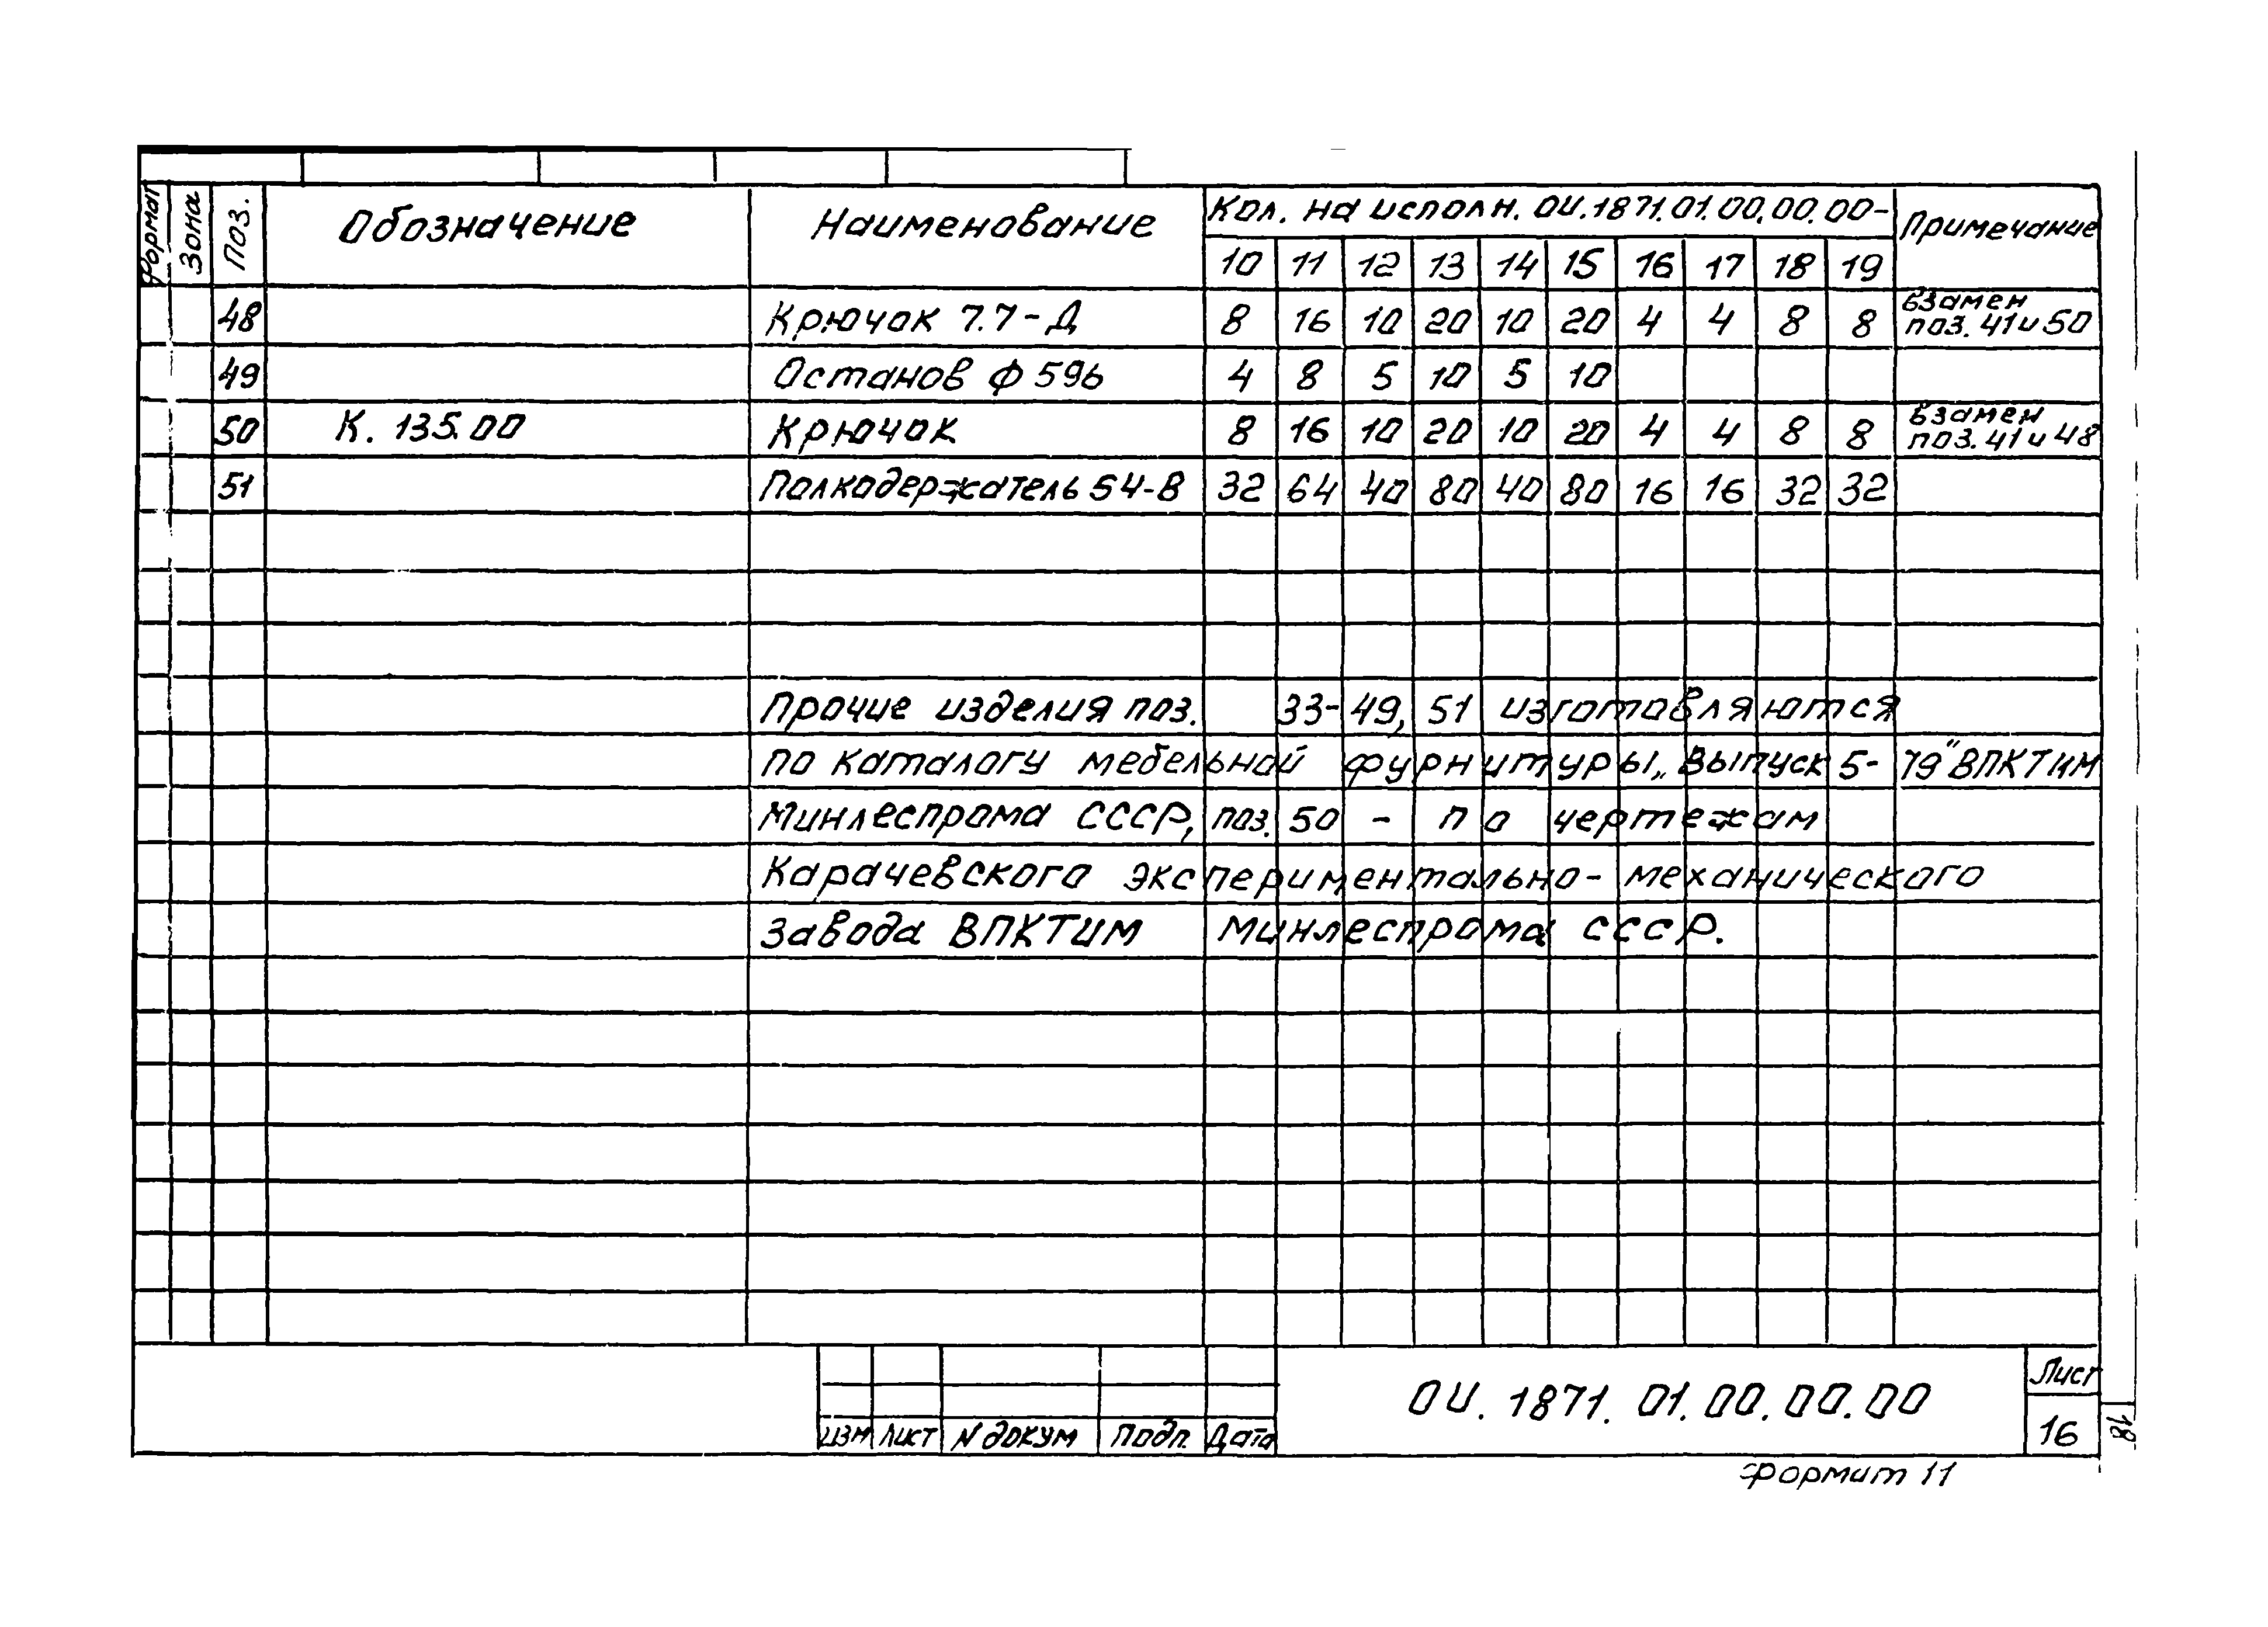 Формат Зона Поз. Обозначение Наименование Кол. на исполн. ОИ.1871.01.00.00.00- Примечание
10 11 12 13 14 15 16 17 18 19
48 Крючок 7.7-Д 8 16 10 20 10 20 4 4 8 8 взамен поз. 41 и 50
49 Останов ф 596 4 8 5 10 5 10
50 К. 135.00 Крючок 8 16 10 20 10 20 4 4 8 8 взамен поз. 41 и 48
51 Полкодержатель 54-В 32 64 40 80 40 80 16 16 32 32
Прочие изделия поз. 33-49, 51 изготовляются
по каталогу мебельной фурнитуры „Выпуск 5-79" ВПКТИМ
Минлеспрома СССР, поз. 50 - по чертежам
Карачевского экспериментально-механического
завода ВПКТИМ Минлеспрома СССР.
Изм Лист N докум Подп. Дата
ОИ. 1871. 01. 00. 00. 00
Лист
16
18
Формат 11